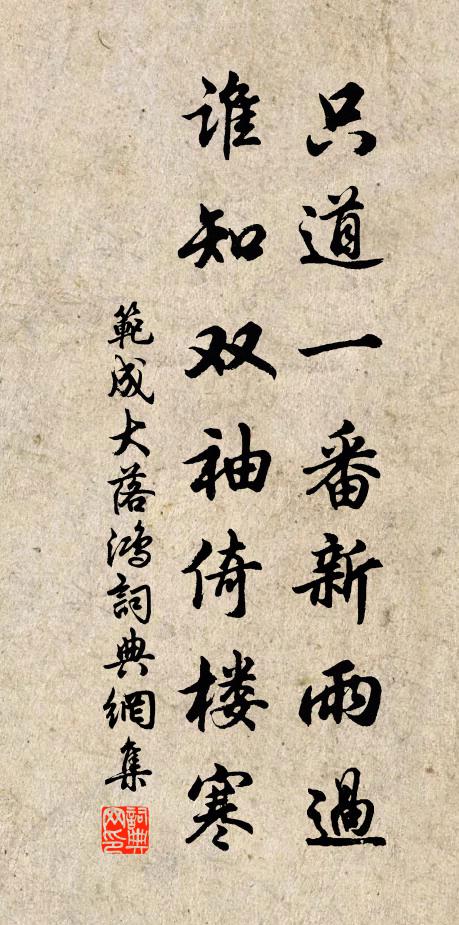 只道一番新雨過
谁知双袖倚楼寒
範成大落鴻詞典網集
詞典网印